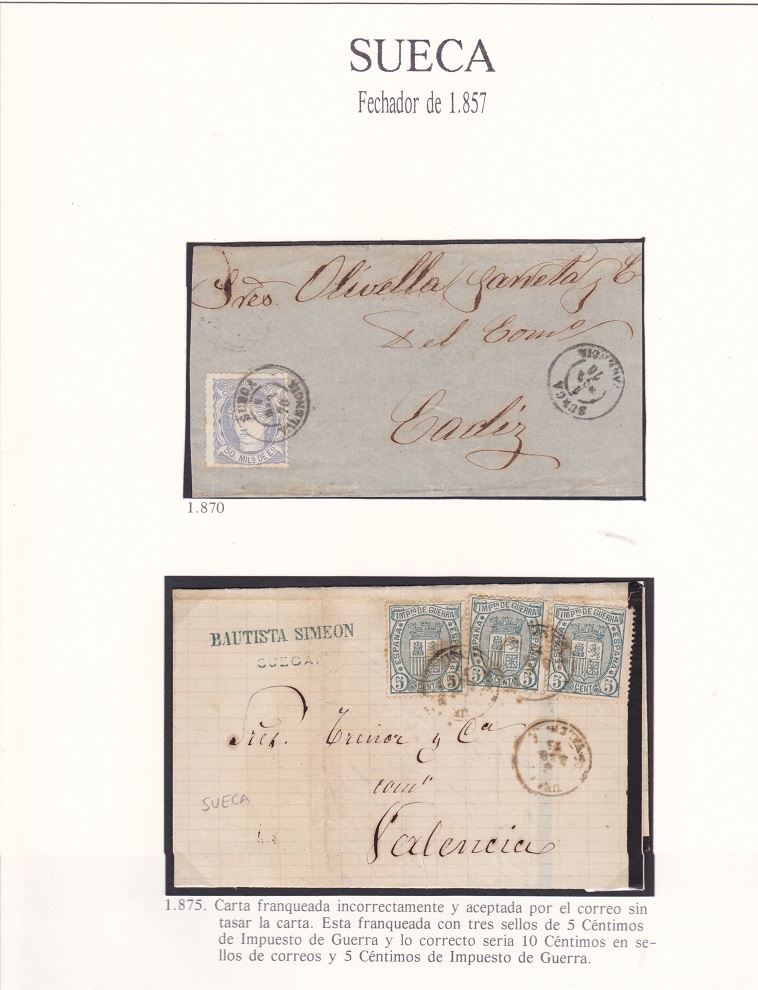 SUECA
Fechador de 1.857
Sres. Olivella Garreta y C
Del Como
Cadiz
SUECA
VALENCIA
50 MILS DE E
SUECA
VALENCIA
1.870
BAUTISTA SIMEON
SUECA.
IMPTO DE GUERRA
ESPAÑA
5 CENT 5
IMPTO DE GUERRA
ESPAÑA
5 CENT 5
IMPTO DE GUERRA
ESPAÑA
5 CENT 5
Sres. Trenor y Ca
como
SUECA
Valencia
1.875. Carta franqueada incorrectamente y aceptada por el correo sin
tasar la carta. Esta franqueada con tres sellos de 5 Céntimos
de Impuesto de Guerra y lo correcto seria 10 Céntimos en se-
llos de correos y 5 Céntimos de Impuesto de Guerra.